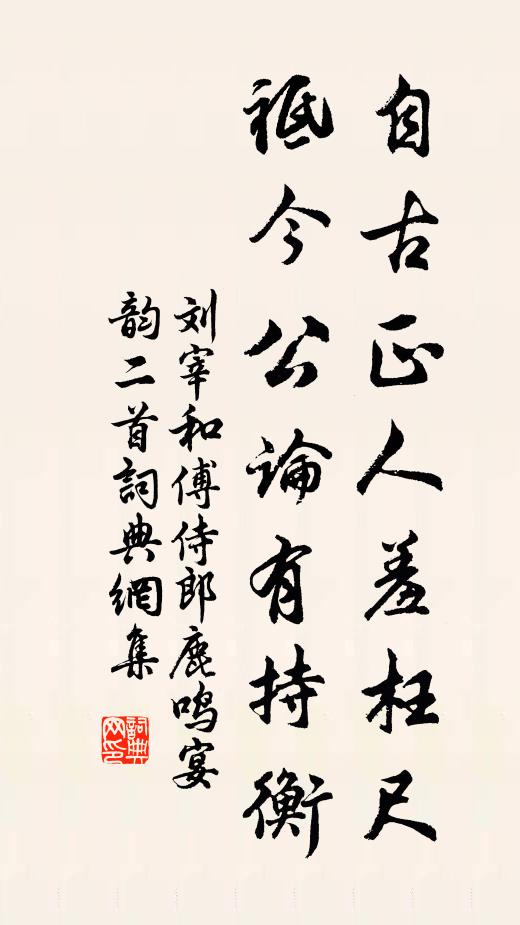 自古正人羞枉尺
祗今公論有持衡
刘宰和傅侍郎鹿鸣宴
韵二首詞典網集
詞典網印